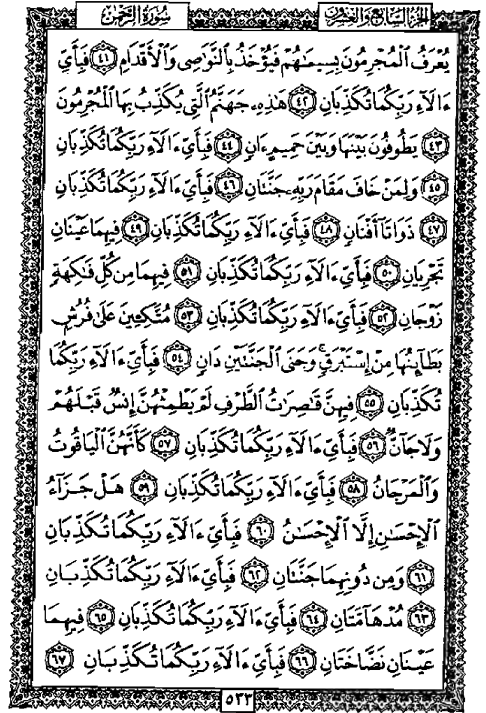 الجزء السابع والعشرون سُورَةُ الرَّحْمٰن
يُعْرَفُ ٱلْمُجْرِمُونَ بِسِيمَٰهُمْ فَيُؤْخَذُ بِٱلنَّوَٰصِى وَٱلْأَقْدَامِ ﴿٤١﴾ فَبِأَىِّ
ءَالَآءِ رَبِّكُمَا تُكَذِّبَانِ ﴿٤٢﴾ هَٰذِهِۦ جَهَنَّمُ ٱلَّتِى يُكَذِّبُ بِهَا ٱلْمُجْرِمُونَ
﴿٤٣﴾ يَطُوفُونَ بَيْنَهَا وَبَيْنَ حَمِيمٍ ءَانٍ ﴿٤٤﴾ فَبِأَىِّ ءَالَآءِ رَبِّكُمَا تُكَذِّبَانِ
﴿٤٥﴾ وَلِمَنْ خَافَ مَقَامَ رَبِّهِۦ جَنَّتَانِ ﴿٤٦﴾ فَبِأَىِّ ءَالَآءِ رَبِّكُمَا تُكَذِّبَانِ
﴿٤٧﴾ ذَوَاتَآ أَفْنَانٍ ﴿٤٨﴾ فَبِأَىِّ ءَالَآءِ رَبِّكُمَا تُكَذِّبَانِ ﴿٤٩﴾ فِيهِمَا عَيْنَانِ
تَجْرِيَانِ ﴿٥٠﴾ فَبِأَىِّ ءَالَآءِ رَبِّكُمَا تُكَذِّبَانِ ﴿٥١﴾ فِيهِمَا مِن كُلِّ فَٰكِهَةٍ
زَوْجَانِ ﴿٥٢﴾ فَبِأَىِّ ءَالَآءِ رَبِّكُمَا تُكَذِّبَانِ ﴿٥٣﴾ مُتَّكِـِٔينَ عَلَىٰ فُرُشٍۭ
بَطَآئِنُهَا مِنْ إِسْتَبْرَقٍ ۚ وَجَنَى ٱلْجَنَّتَيْنِ دَانٍ ﴿٥٤﴾ فَبِأَىِّ ءَالَآءِ رَبِّكُمَا
تُكَذِّبَانِ ﴿٥٥﴾ فِيهِنَّ قَٰصِرَٰتُ ٱلطَّرْفِ لَمْ يَطْمِثْهُنَّ إِنسٌ قَبْلَهُمْ
وَلَا جَآنٌّ ﴿٥٦﴾ فَبِأَىِّ ءَالَآءِ رَبِّكُمَا تُكَذِّبَانِ ﴿٥٧﴾ كَأَنَّهُنَّ ٱلْيَاقُوتُ
وَٱلْمَرْجَانُ ﴿٥٨﴾ فَبِأَىِّ ءَالَآءِ رَبِّكُمَا تُكَذِّبَانِ ﴿٥٩﴾ هَلْ جَزَآءُ
ٱلْإِحْسَٰنِ إِلَّا ٱلْإِحْسَٰنُ ﴿٦٠﴾ فَبِأَىِّ ءَالَآءِ رَبِّكُمَا تُكَذِّبَانِ
﴿٦١﴾ وَمِن دُونِهِمَا جَنَّتَانِ ﴿٦٢﴾ فَبِأَىِّ ءَالَآءِ رَبِّكُمَا تُكَذِّبَانِ
﴿٦٣﴾ مُدْهَآمَّتَانِ ﴿٦٤﴾ فَبِأَىِّ ءَالَآءِ رَبِّكُمَا تُكَذِّبَانِ ﴿٦٥﴾ فِيهِمَا
عَيْنَانِ نَضَّاخَتَانِ ﴿٦٦﴾ فَبِأَىِّ ءَالَآءِ رَبِّكُمَا تُكَذِّبَانِ ﴿٦٧﴾
٥٣٣